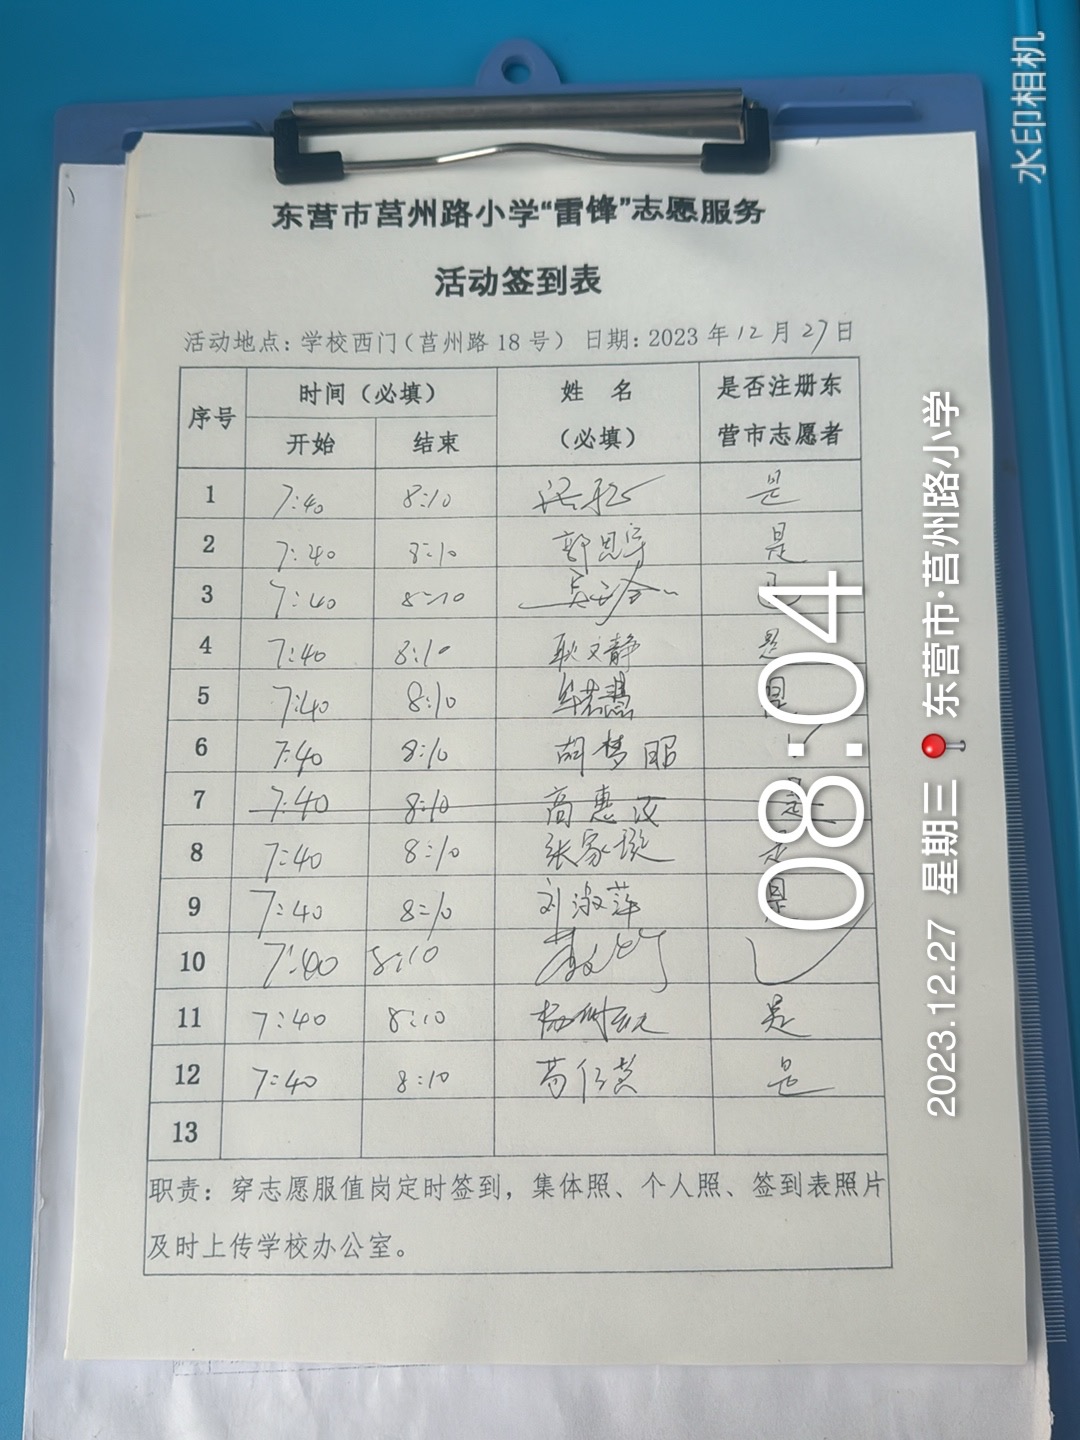 水印相机
东营市莒州路小学“雷锋”志愿服务
活动签到表
活动地点：学校西门（莒州路18号） 日期：2023年12月27日
序号 时间（必填） 姓 名（必填） 是否注册东营市志愿者
开始 结束
1 7:40 8:10 是
2 7:40 8:10 郭思宇 是
3 7:40 8:10
4 7:40 8:10 耿文静 是
5 7:40 8:10 牟若慧 是
6 7:40 8:10 胡梦昭 ✓
7 7:40 8:10 高惠汉 是
8 7:40 8:10 张家璇 是
9 7:40 8:10 刘淑萍 是
10 7:40 8:10 ✓
11 7:40 8:10 是
12 7:40 8:10 是
13
职责：穿志愿服值岗定时签到，集体照、个人照、签到表照片
及时上传学校办公室。
08:04
2023.12.27 星期三 东营市·莒州路小学